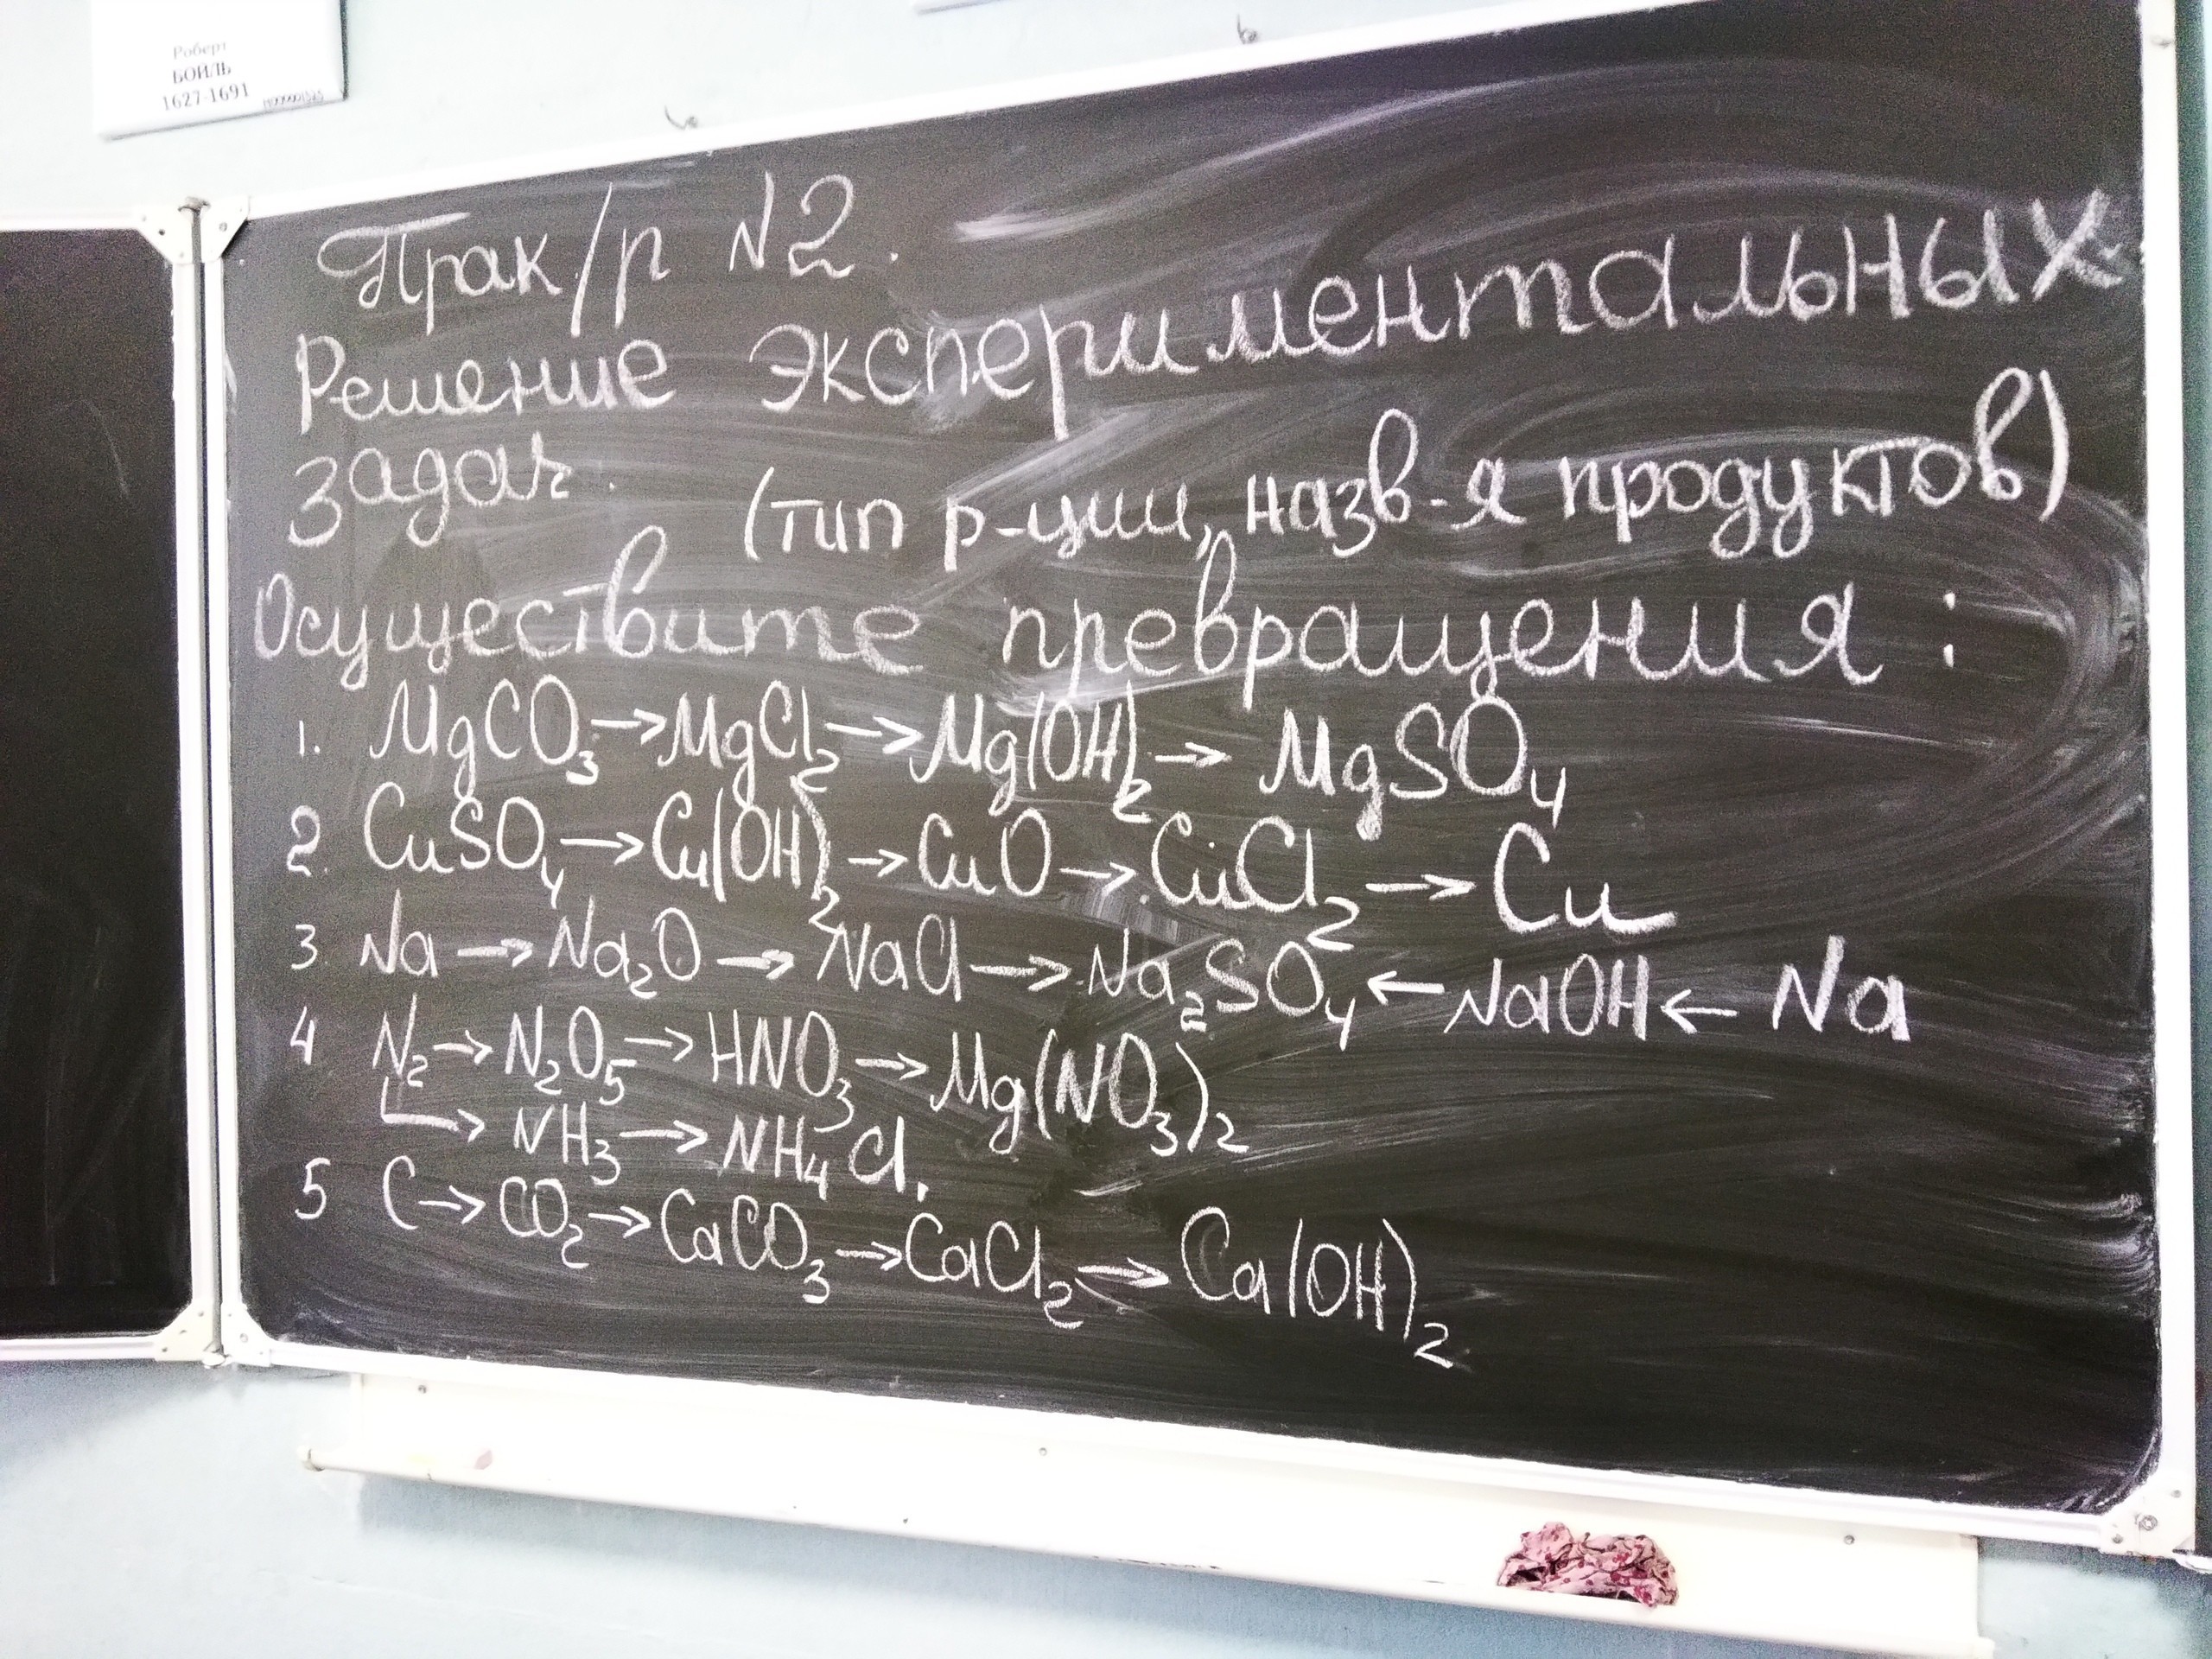 Роберт
БОЙЛЬ
1627-1691
Прак/р N2.
Решение экспериментальных
задач.
(тип р-ции, назв-я продуктов)
Осуществите превращения:
1. MgCO₃→MgCl₂→Mg(OH)₂→ MgSO₄
2. CuSO₄→Cu(OH)₂→CuO→CuCl₂→Cu
3. Na→Na₂O→NaCl→Na₂SO₄←NaOH← Na
4 N₂→N₂O₅→HNO₃→Mg(NO₃)₂
→NH₃→NH₄Cl.
5 C→CO₂→CaCO₃→CaCl₂→Ca(OH)₂